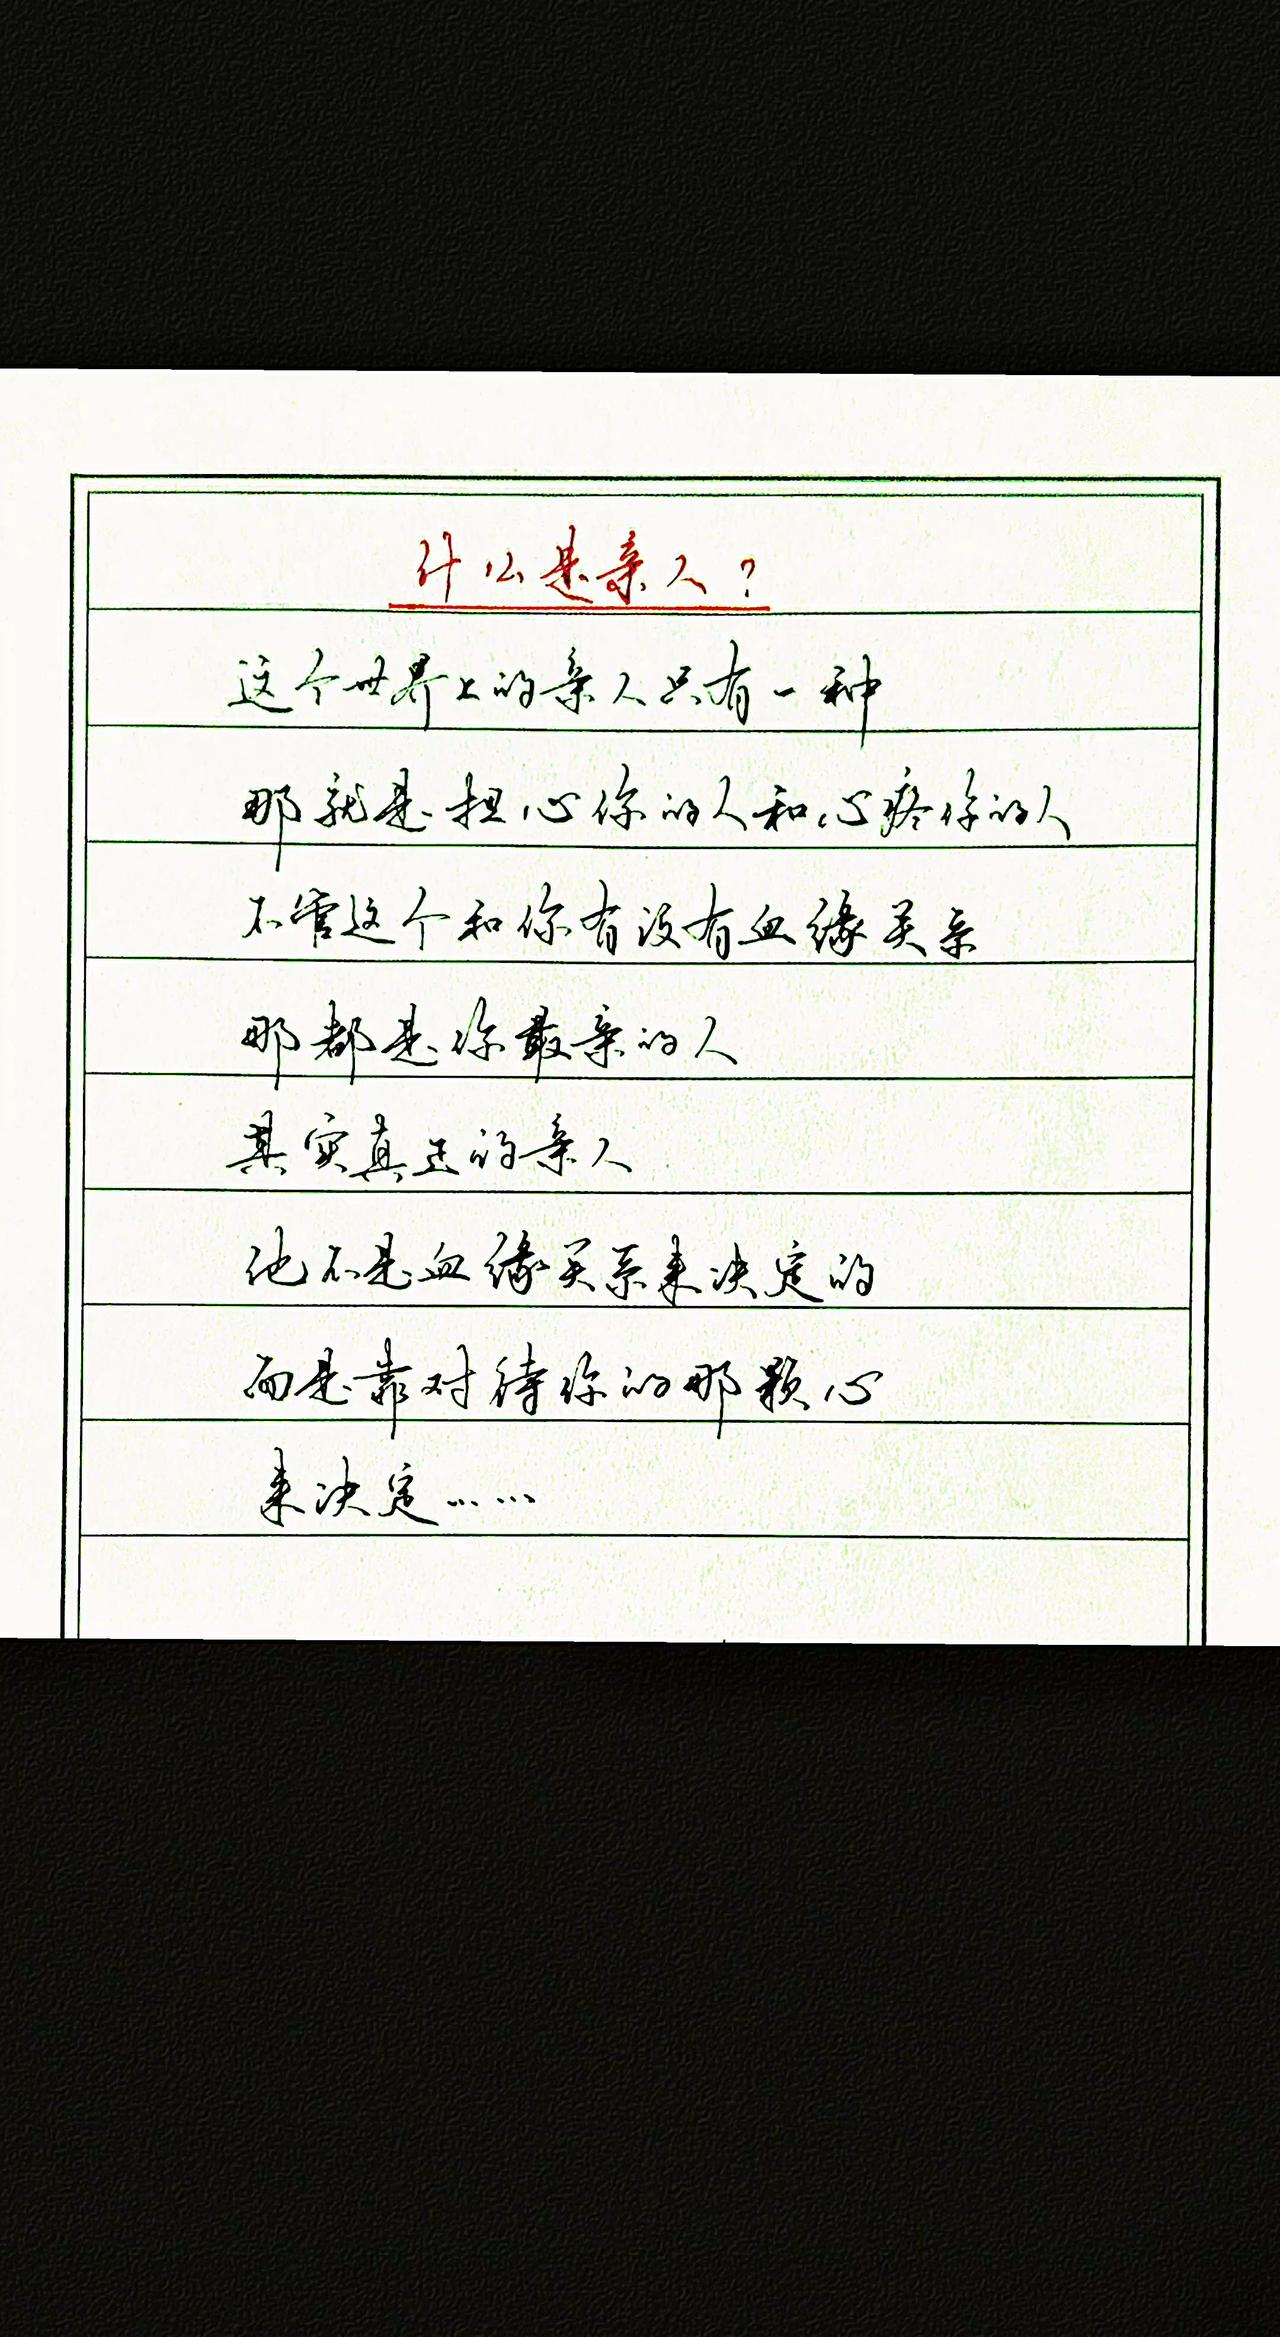 什么是亲人?
这个世界上的亲人只有一种
那就是担心你的人和心疼你的人
不管这个和你有没有血缘关系
那都是你最亲的人
其实真正的亲人
他不是血缘关系来决定的
而是靠对待你的那颗心
来决定……